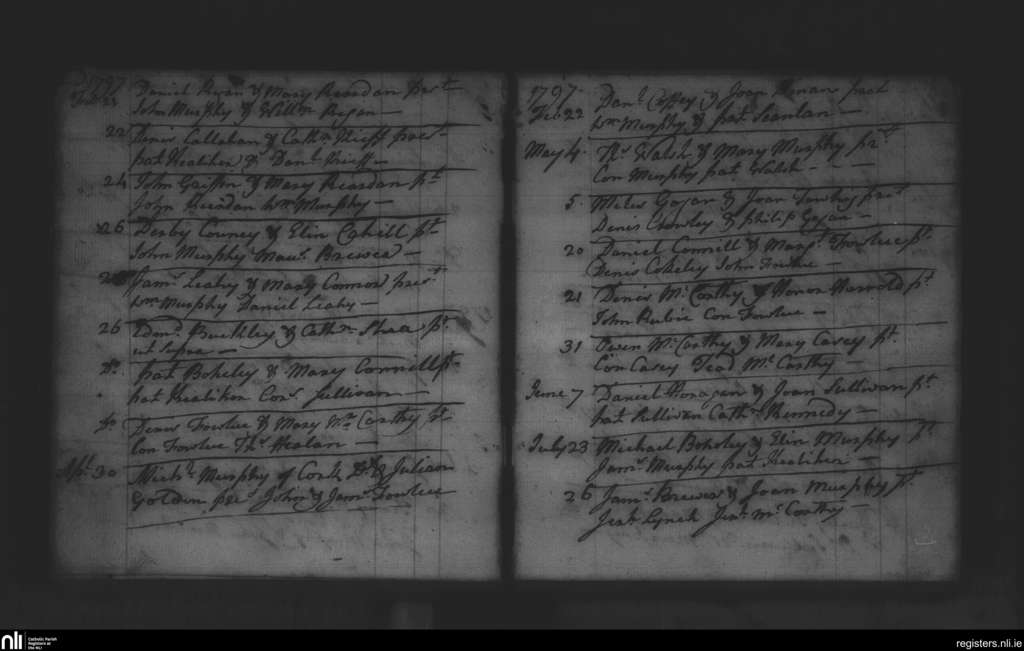 1797
Feb. 23 Daniel Regan & Mary Reardan prst
John Murphy & Willm Regan
22 Denis Callahan & Cathn Keeff prst
pat Healihen & Danl Keeff
24 John Griffin & Mary Reardan pt
John Reardan Wm Murphy
26 Derby Couney & Elin Cahill pt
John Murphy Maus. Brewer
Jams Leahy & Mary Connor prst
Wm Murphy Daniel Leahy
26 Edmd. Buckley & Cathn Shea pt
ut Supra
Do. pat Boheley & Mary Connill pt
pat Healihen Cons. Sullivan
Do Denis Fowlue & Mary Mc Carthy pt
Con Fowlue Ths Healan
Apl 30 Michl Murphy of Cork & Julian
Golden prst John & Jams Fowlue
1797.
Feb. 22 Danl Coffey & Joan prst
Wm Murphy & pat Scanlan
May 4. Ths Walsh & Mary Murphy prt
Con Murphy pat Walsh
5. & Joan prst
Denis & Philip
20 Daniel Connell & Margt Fowlue pt
Denis Cokeley John Fowlue
21 Denis Mc Carthy & Honor Harrold pt
John Con Fowlue
31 Owen Mc Carthy & Mary Casey pt.
Con Casey Tead Mc Carthy
June 7 Daniel & Joan Sullivan pt
pat Sullivan Cathn Kennedy
July 23 Michael Boheley & Elin Murphy pt
Jams Murphy pat Healihen
26 Jams Brewer & Joan Murphy pt
Lynch Mc Carthy
nli
Catholic Parish
Registers at
the NLI
registers.nli.ie